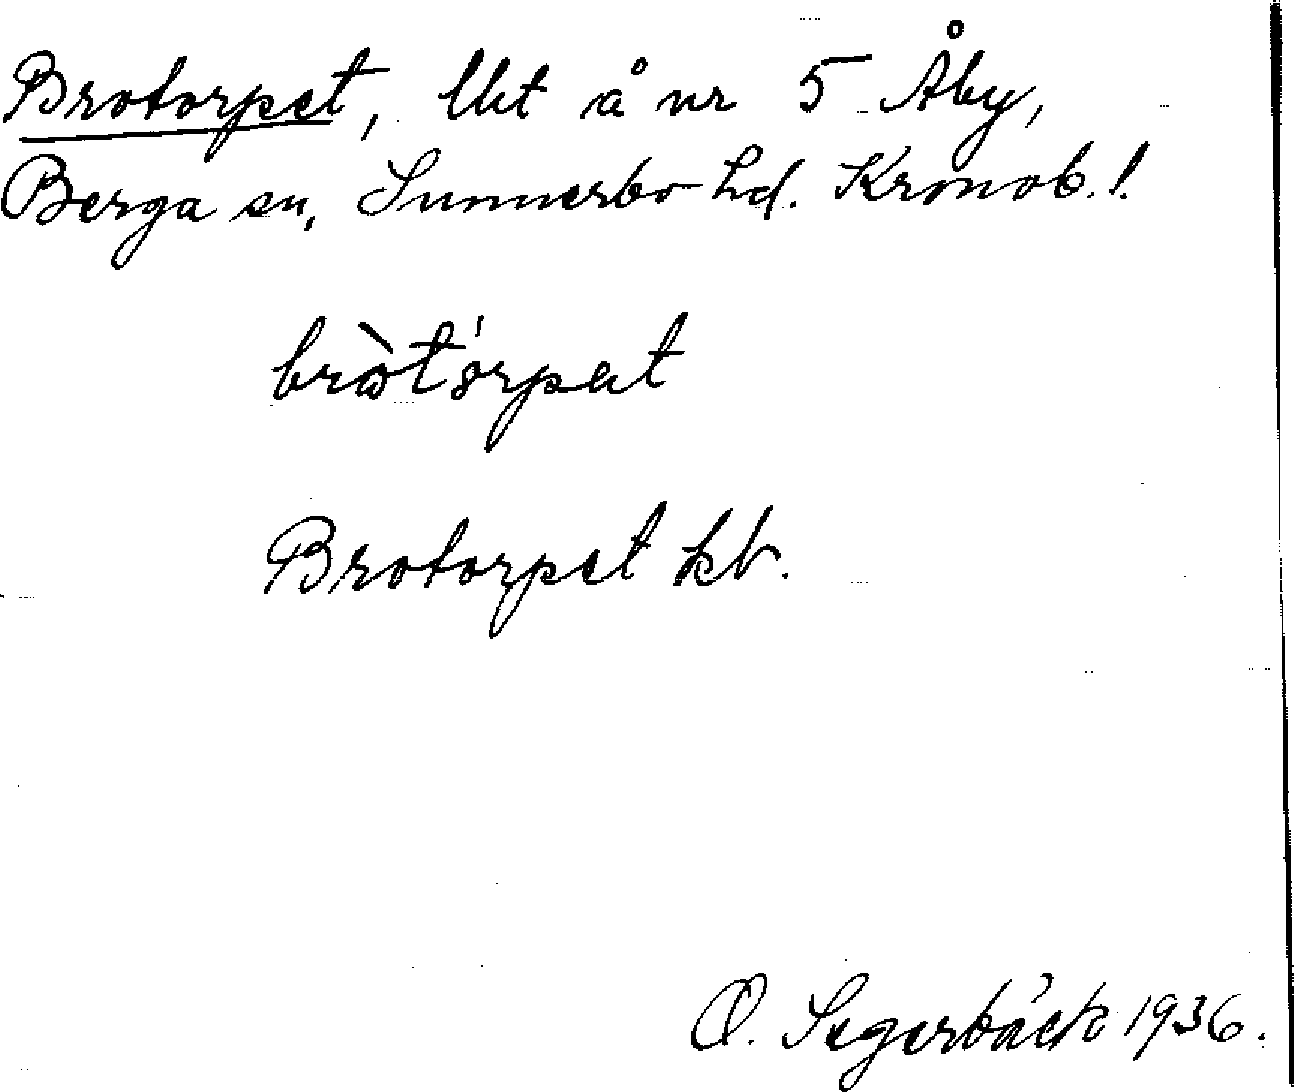 Brotorpet, lht å nr 5 Åby,
Berga sn, Sunnerbo hd. Kronob. l.
bròtórpet
Brotorpet kb.
O. Segerbäck 1936.